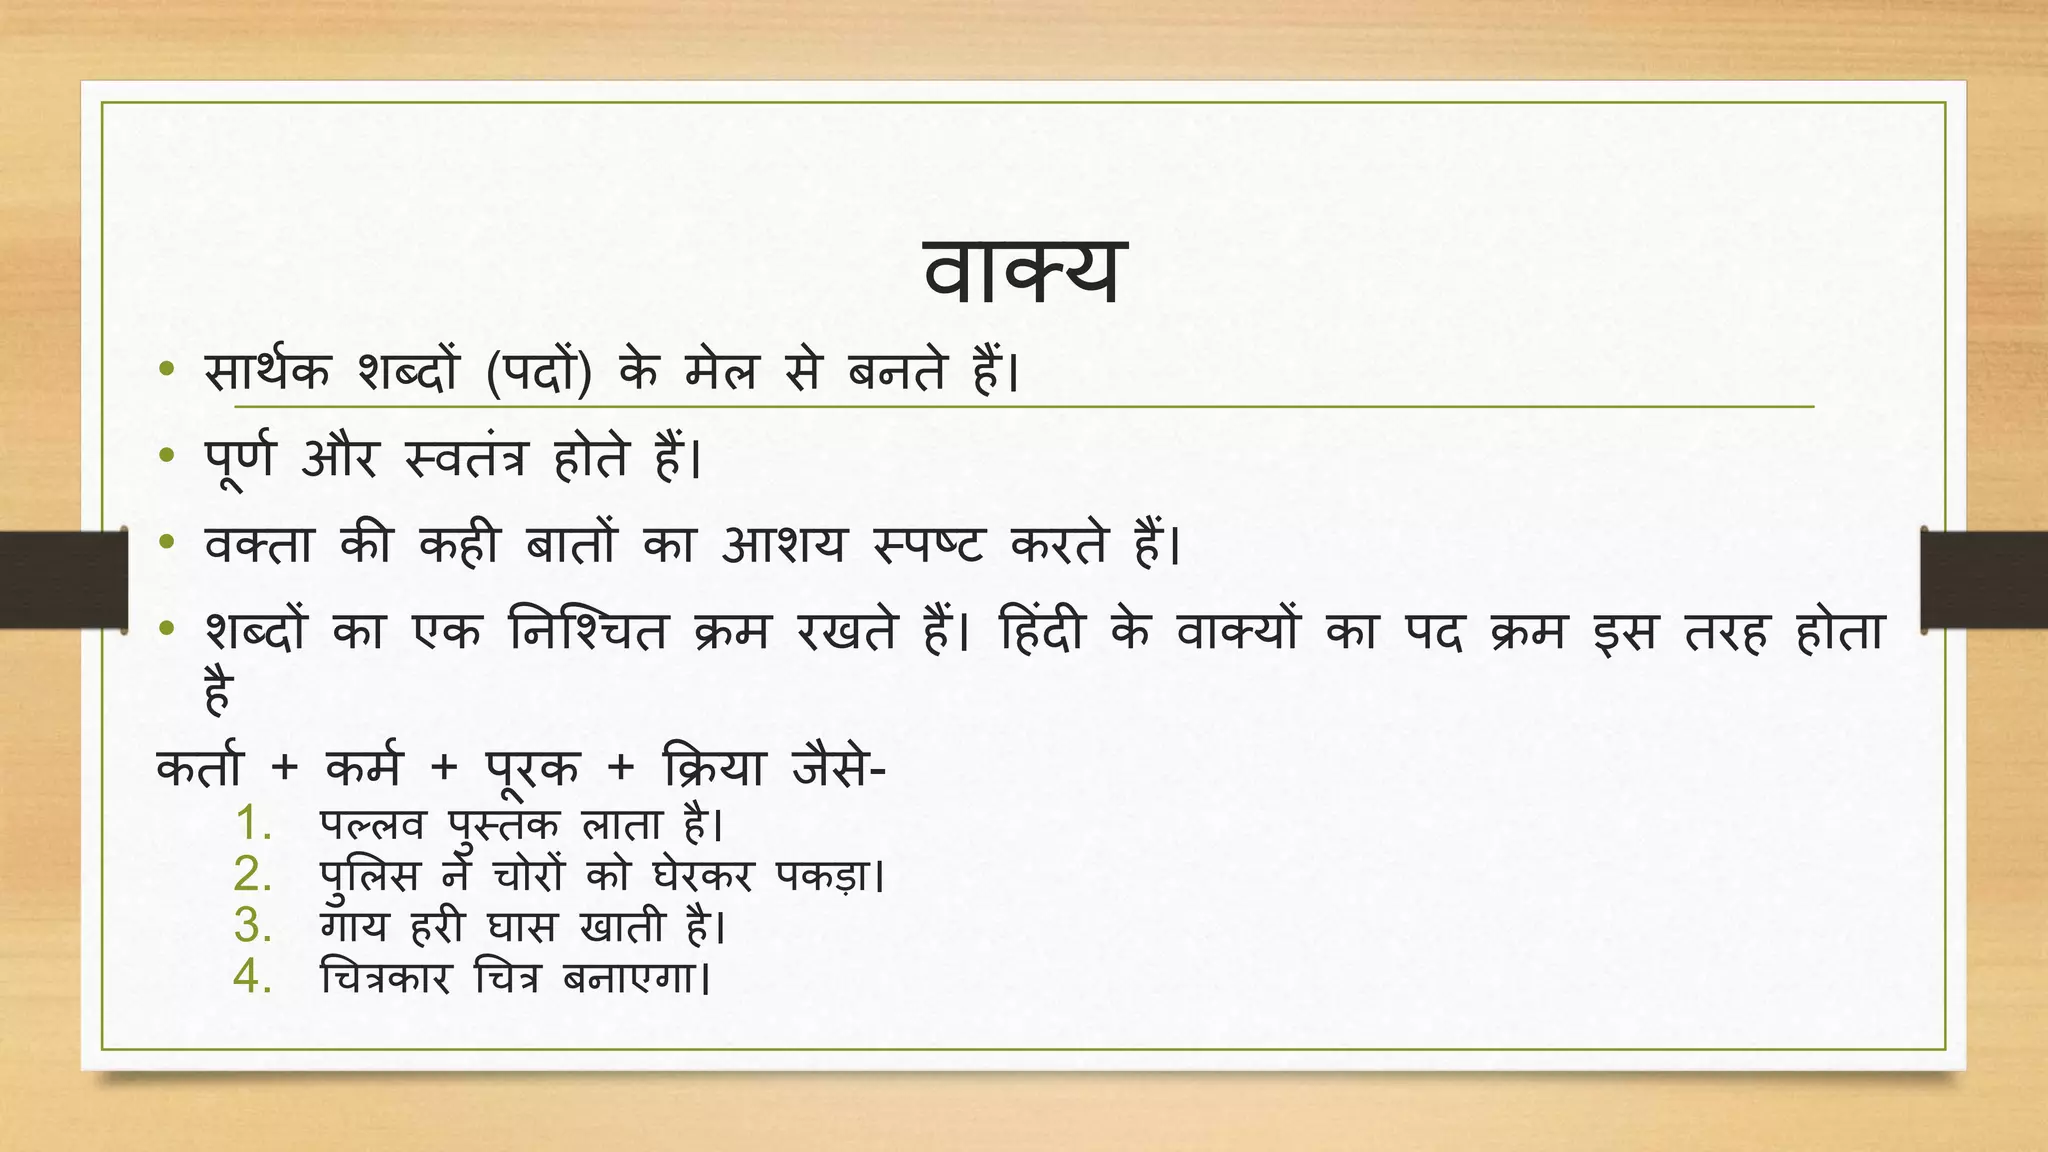 वाक्य
• सार्थक शब्दों (पदों) के मेल से बनते हैं।
• पूर्ण और स्वतंत्र होते हैं।
• वक्ता की कही बातों का आशय स्पष्ट करते हैं।
• शब्दों का एक निश्चित क्रम रखते हैं। हिंदी के वाक्यों का पद क्रम इस तरह होता
है
कर्ता + कर्म + पूरक + क्रिया जैसे-
1. पल्लव पुस्तक लाता है।
2. पुलिस ने चोरों को घेरकर पकड़ा।
3. गाय हरी घास खाती है।
4. चित्रकार चित्र बनाएगा।